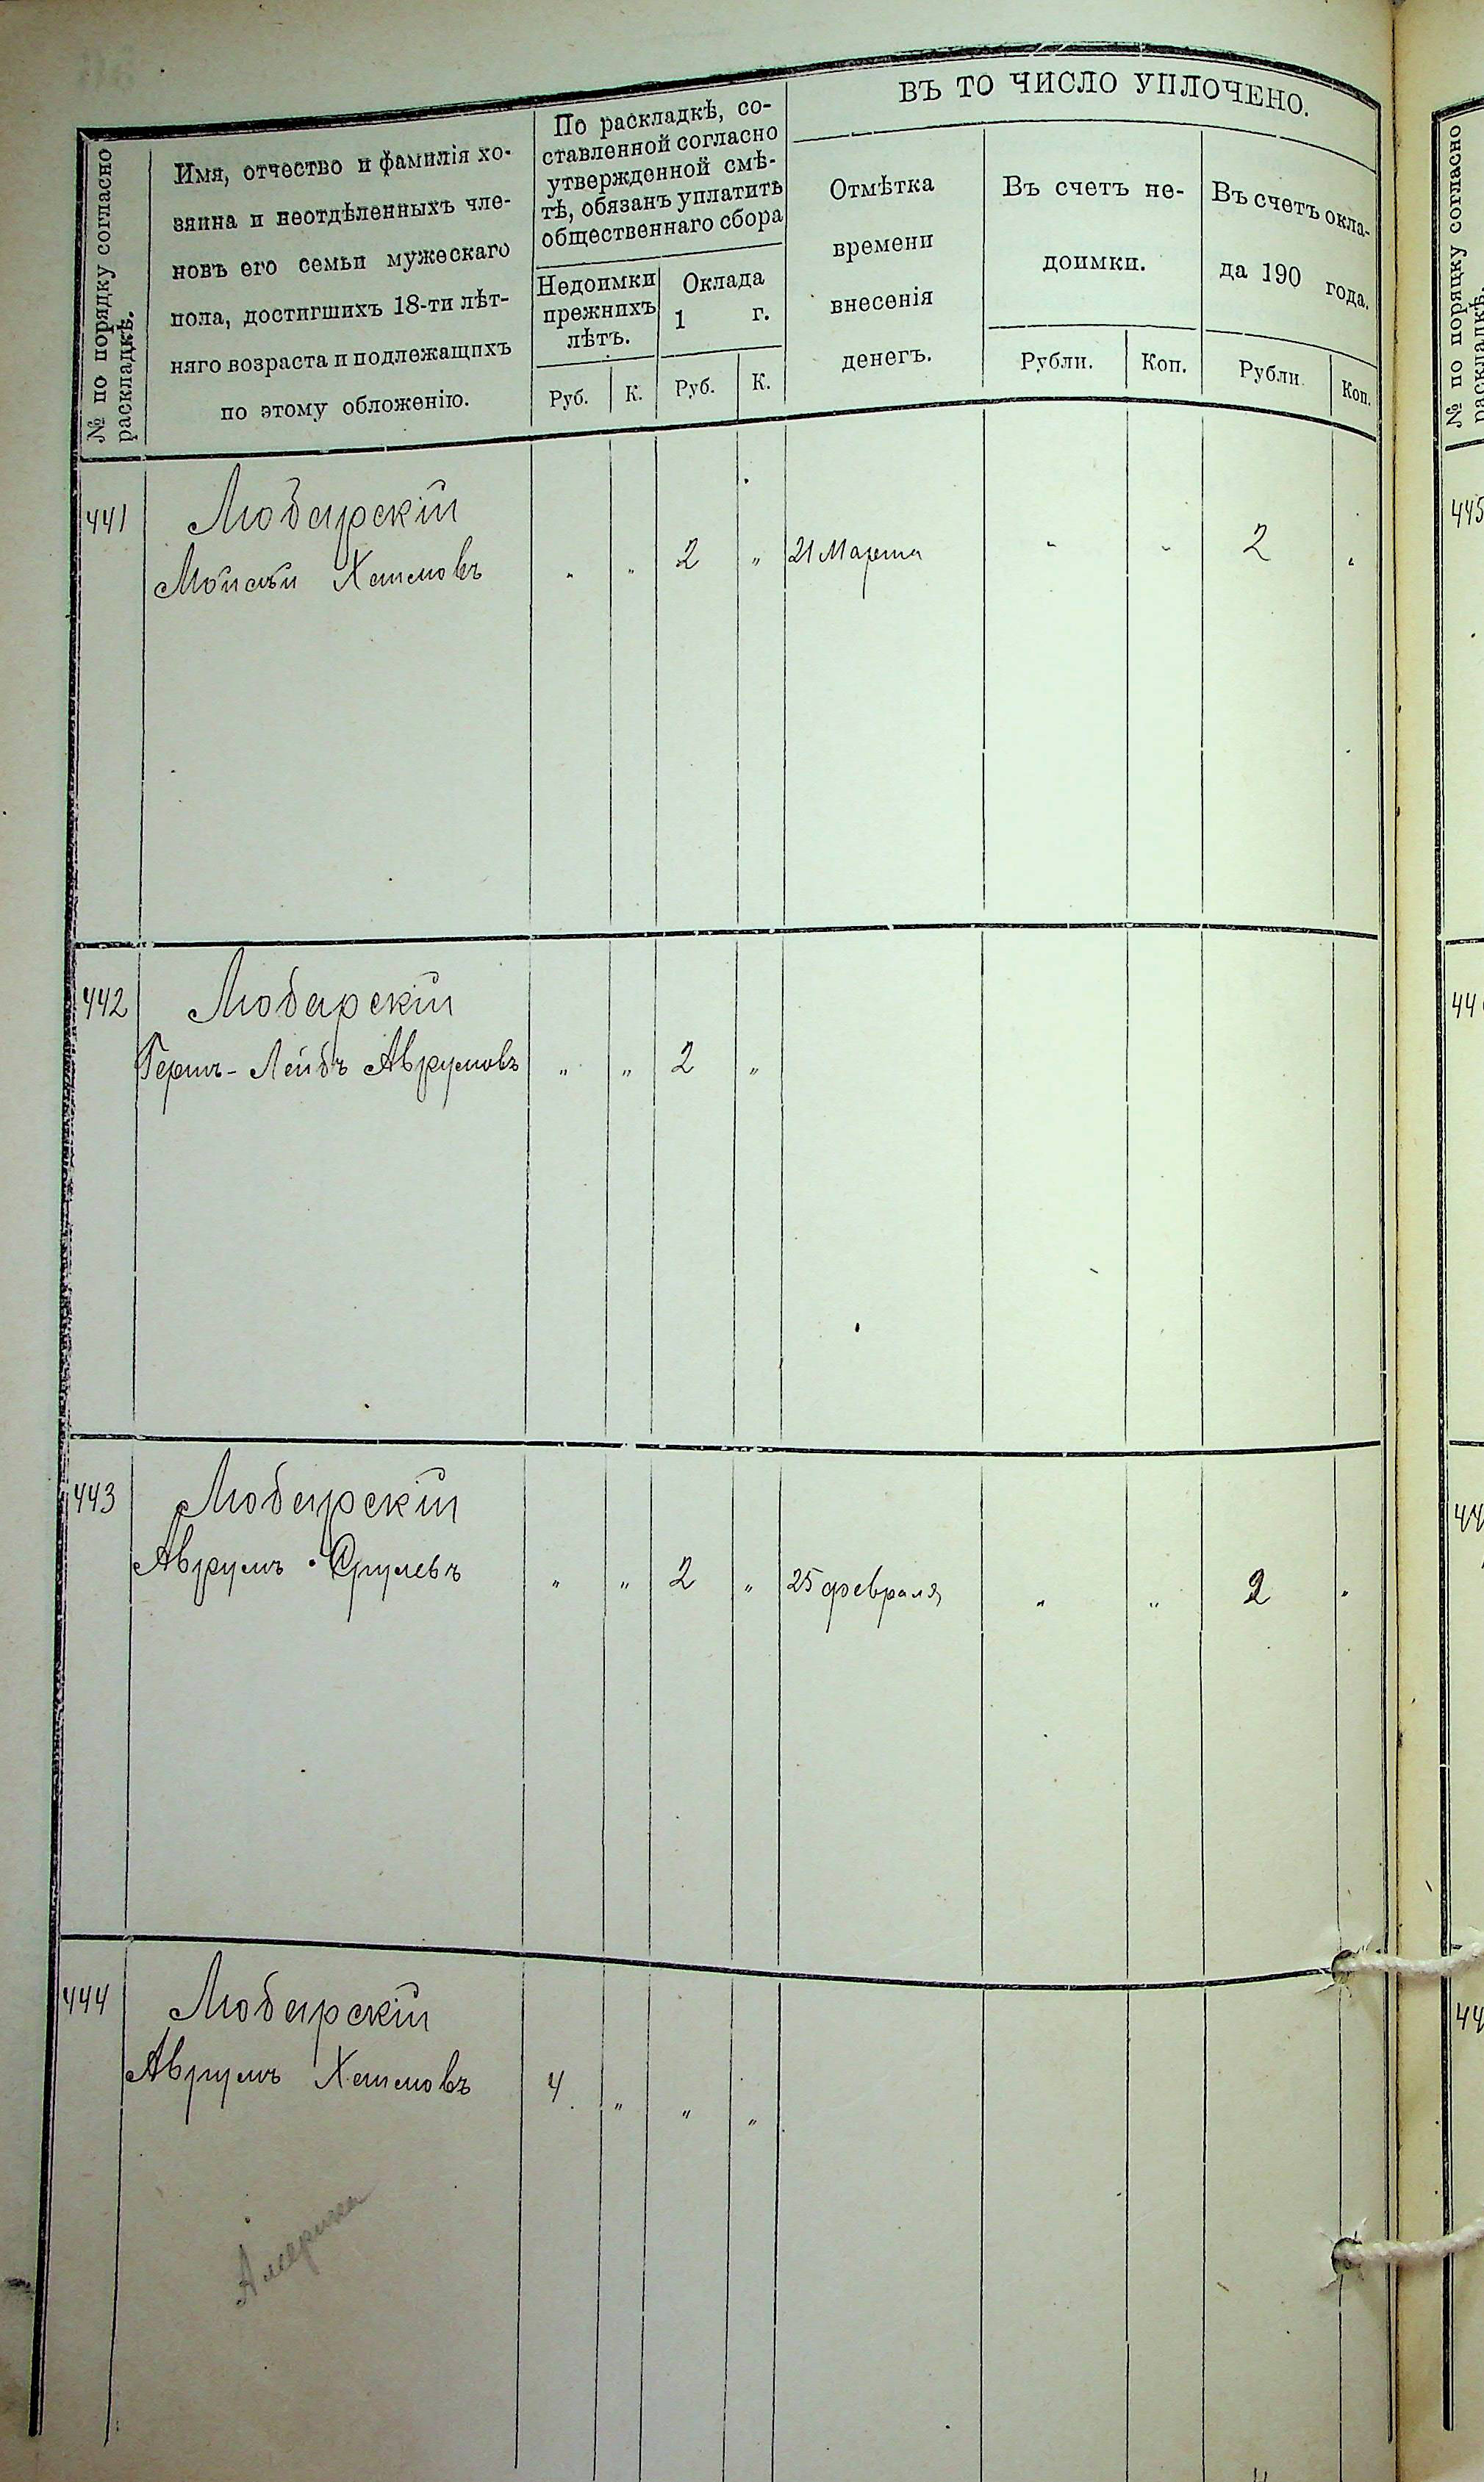 № по порядку согласно
раскладкѣ.
Имя, отчество и фамилія хо-
зяина и неотдѣленныхъ чле-
новъ его семьи мужескаго
пола, достигшихъ 18-ти лѣт-
няго возраста и подлежащихъ
по этому обложенію.
По раскладкѣ, со-
ставленной согласно
утвержденной смѣ-
тѣ, обязанъ уплатить
общественнаго сбора
Недоимки
прежнихъ
лѣтъ.
Оклада
1 г.
Руб. К. Руб. К.
ВЪ ТО ЧИСЛО УПЛОЧЕНО.
Отмѣтка
времени
внесенія
денегъ.
Въ счетъ не-
доимки.
Рубли. Коп.
Въ счетъ окла-
да 190 года.
Рубли. Коп.
441 Любарскій
Моисѣй Хаимовъ „ „ 2 „ 21 Марта „ „ 2 „
442 Любарскій
Герш-Лейбъ Аврумовъ „ „ 2 „
443 Любарскій
Аврумъ Срулевъ „ „ 2 „ 25 февраля „ „ 2 „
444 Любарскій
Аврумъ Хаимовъ 4 „ „ „
Америка
№ по порядку согласно
раскладкѣ.
445